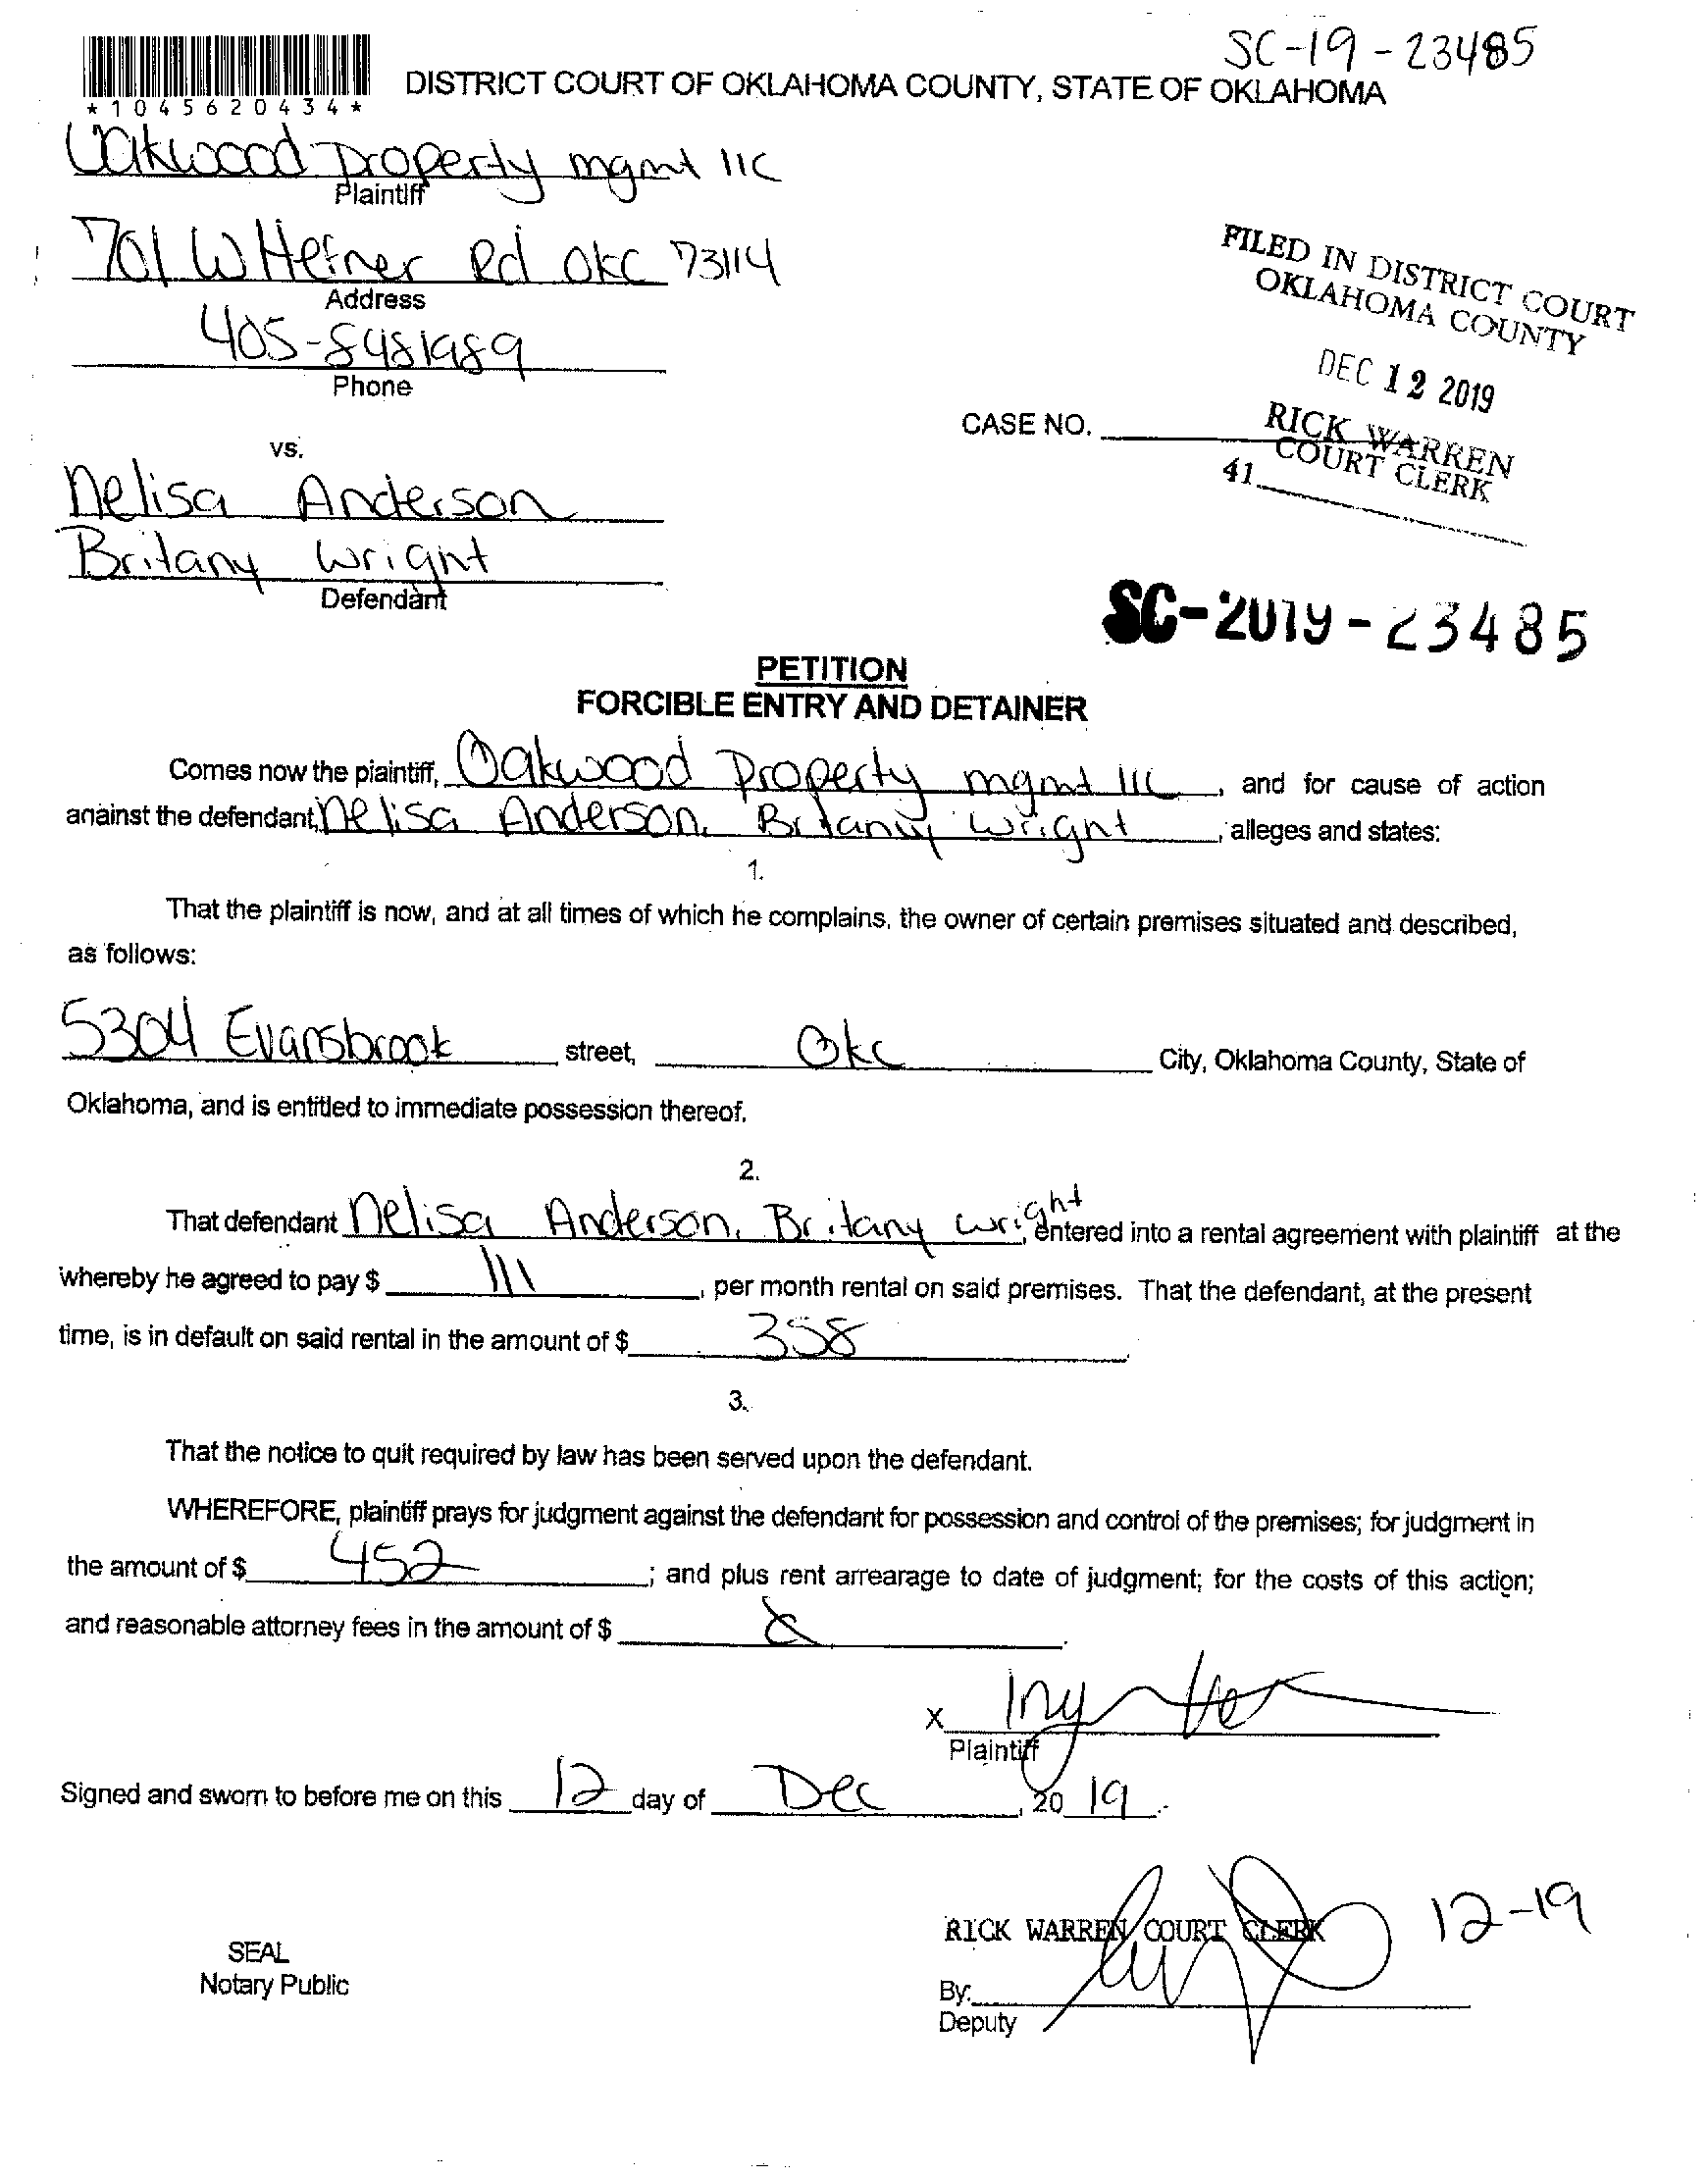 SC-19-23485
*1045620434*
DISTRICT COURT OF OKLAHOMA COUNTY, STATE OF OKLAHOMA
Oakwood Property mgmt llc
Plaintiff
701 W Hefner Rd OKC 73114
Address
405-8481989
Phone
FILED IN DISTRICT COURT
OKLAHOMA COUNTY
DEC 12 2019
RICK WARREN
COURT CLERK
41
CASE NO.
vs.
Nelisa Anderson
Britany Wright
Defendant
SC-2019-23485
PETITION
FORCIBLE ENTRY AND DETAINER
Comes now the plaintiff, Oakwood Property mgmt llc, and for cause of action
against the defendant, Nelisa Anderson, Britany Wright, alleges and states:
1.
That the plaintiff is now, and at all times of which he complains, the owner of certain premises situated and described,
as follows:
5304 Evansbrook street, Okc City, Oklahoma County, State of
Oklahoma, and is entitled to immediate possession thereof.
2.
That defendant Nelisa Anderson, Britany Wright, entered into a rental agreement with plaintiff at the
whereby he agreed to pay $ 111, per month rental on said premises. That the defendant, at the present
time, is in default on said rental in the amount of $ 358.
3.
That the notice to quit required by law has been served upon the defendant.
WHEREFORE, plaintiff prays for judgment against the defendant for possession and control of the premises; for judgment in
the amount of $ 452; and plus rent arrearage to date of judgment; for the costs of this action;
and reasonable attorney fees in the amount of $
X
Plaintiff
Signed and sworn to before me on this 12 day of Dec, 20 19.
RICK WARREN COURT CLERK 12-19
SEAL
Notary Public
By:
Deputy